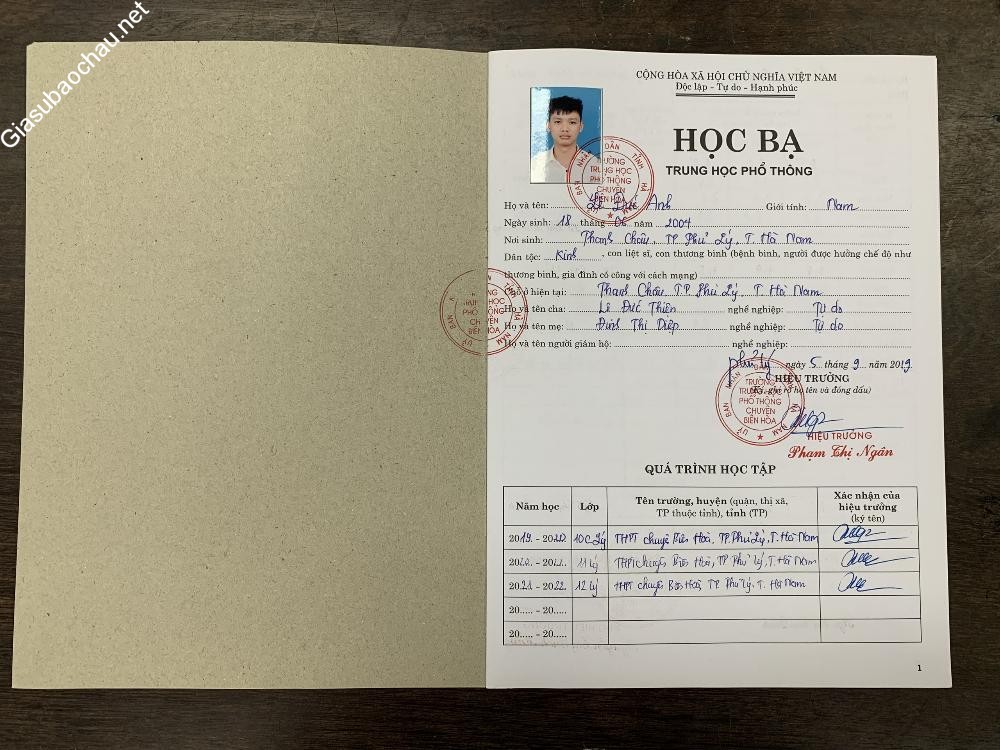 Giasubaochau.net
CỘNG HÒA XÃ HỘI CHỦ NGHĨA VIỆT NAM
Độc lập - Tự do - Hạnh phúc
HỌC BẠ
TRUNG HỌC PHỔ THÔNG
ỦY BAN NHÂN DÂN TỈNH HÀ NAM
TRƯỜNG
TRUNG HỌC
PHỔ THÔNG
CHUYÊN
BIÊN HÒA
Họ và tên: Lê Đức Anh Giới tính: Nam
Ngày sinh: 18 tháng 06 năm 2004
Nơi sinh: Thanh Châu, TP Phủ Lý, T. Hà Nam
Dân tộc: Kinh, con liệt sĩ, con thương binh (bệnh binh, người được hưởng chế độ như
thương binh, gia đình có công với cách mạng)
Chỗ ở hiện tại: Thanh Châu TP Phủ Lý, T. Hà Nam
Họ và tên cha: Lê Đức Thiên nghề nghiệp: Tự do
Họ và tên mẹ: Đinh Thị Diệp nghề nghiệp: Tự do
Họ và tên người giám hộ: nghề nghiệp:
Phủ Lý, ngày 5 tháng 9 năm 2019
HIỆU TRƯỞNG
(Ký, ghi rõ họ tên và đóng dấu)
TRƯỜNG
TRUNG HỌC
PHỔ THÔNG
CHUYÊN
BIÊN HÒA
HIỆU TRƯỞNG
Phạm Thị Ngân
QUÁ TRÌNH HỌC TẬP
Năm học Lớp Tên trường, huyện (quận, thị xã, TP thuộc tỉnh), tỉnh (TP) Xác nhận của hiệu trưởng (ký tên)
2019 - 2020 10C Lý THPT chuyên Biên Hoà, TP Phủ Lý, T. Hà Nam
2020 - 2021 11 Lý THPT chuyên Biên Hoà, TP Phủ Lý, T. Hà Nam
2021 - 2022 12 Lý THPT chuyên Biên Hoà, TP Phủ Lý, T. Hà Nam
20..... - 20.....
20..... - 20.....
1